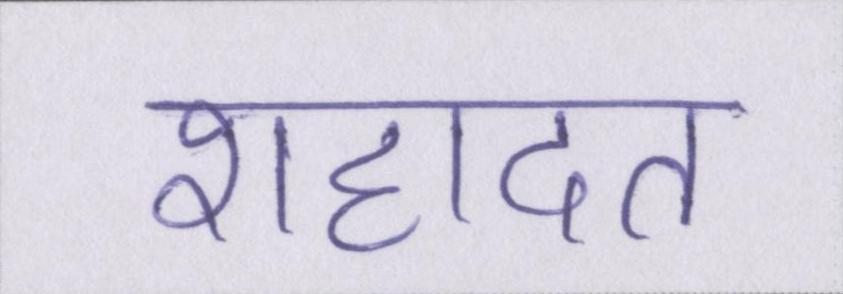 शहादत